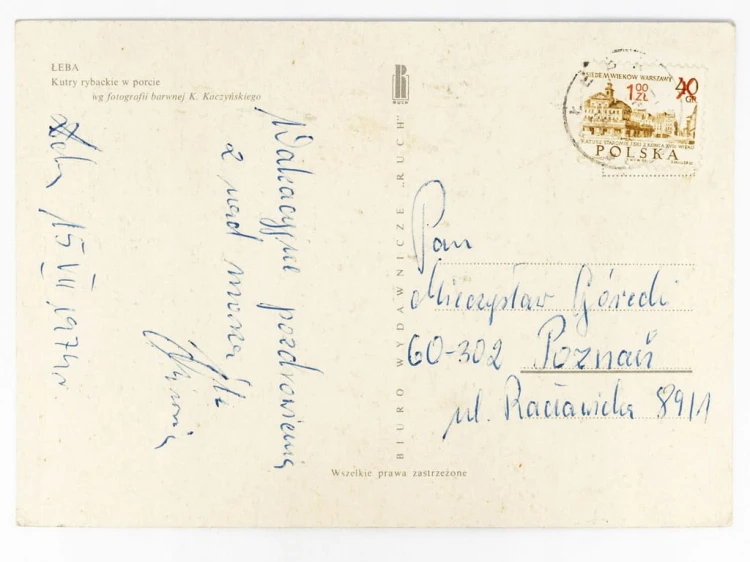 ŁEBA
Kutry rybackie w porcie
wg fotografii barwnej K. Kaczyńskiego
RUCH
BIURO WYDAWNICZE „RUCH”
SIEDEM WIEKÓW WARSZAWY
1 00 ZŁ
40 GR
POLSKA
Łeba 15 VII 1974r.
Wakacyjne pozdrowienia
z nad morza śle
Pan
Mieczysław Górecki
60-302 Poznań
ul. Racławicka 89/1
Wszelkie prawa zastrzeżone